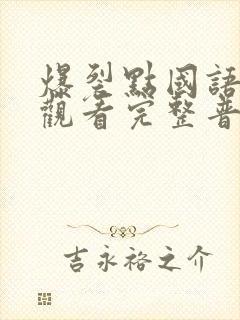 爆裂點國語
觀看完整普
吉永裕之介